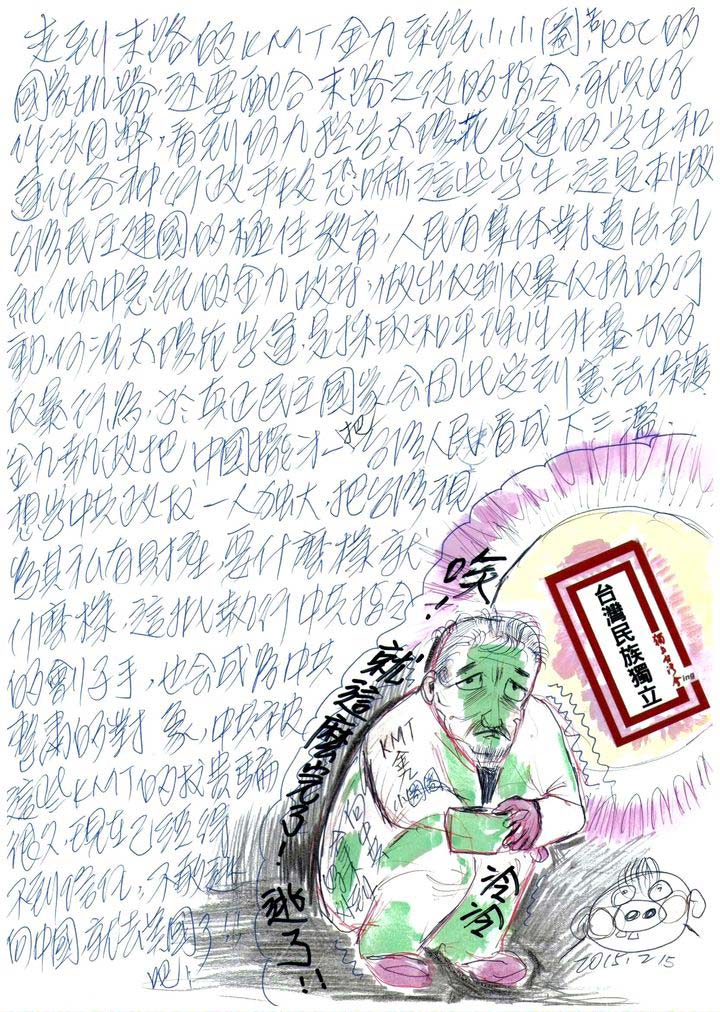 走到末路的KMT金九系統小小圈當ROC的
國家机器,還要配合末路之徒的指令,就只好
作法自弊,看到阿九控告太陽花學運的學生和
運作各种行政手段恐嚇這些學生,這是刺激
台灣民主建國的極佳教育,人民有集体對違法乱
紀,傾中急統的金九政府,做出反制反暴反抗的行
動,何況太陽花學運,是採取和平理性非暴力的
反暴行為,於真正民主國家会因此受到憲法保護
金九執政把中國擺才一把台灣人民看成下三濫,
想當中共政权一人独大,把台灣視
為其私有財產,要什麼樣就
什麼樣,這批執行中共指令
的劊子手,也会成為中共
整肅的對象,中共被
這些KMT的權貴騙
很久,現在已經得
不到信任,不敢逃
向中國就去美國了!!
吧!
唉!
就這麼完了!逃了!!
台灣民族獨立
獨立台灣會
ing
KMT
金九
小圈圈
冷冷
2015.2.15